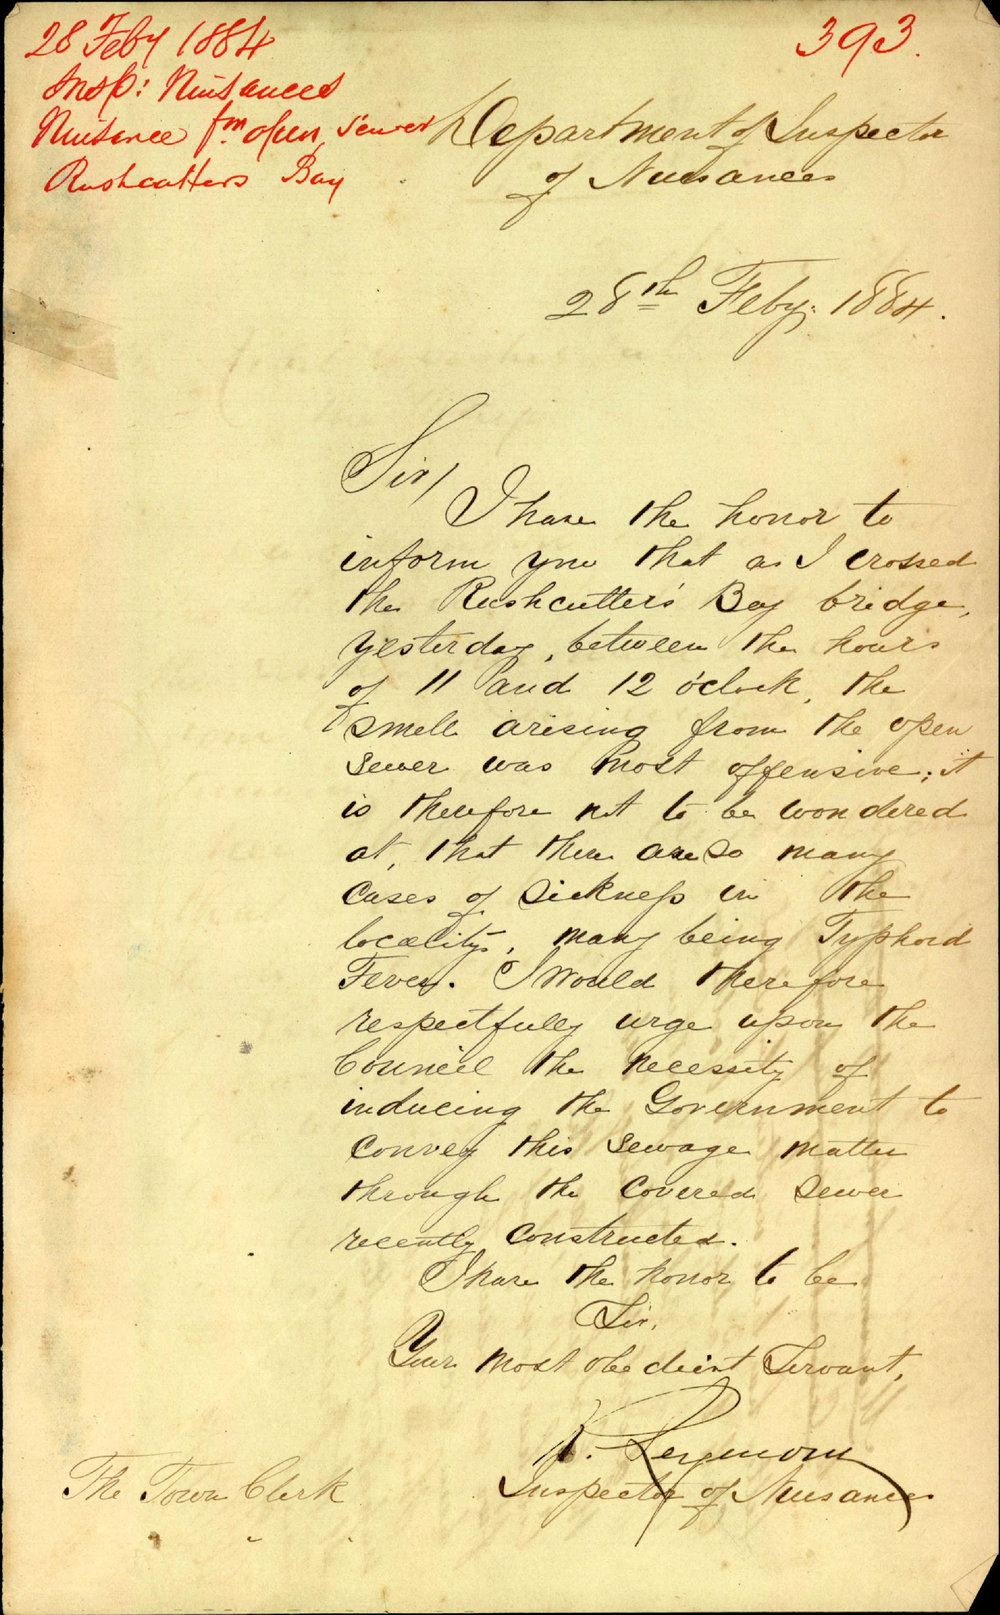 28 Feby 1884
393.
Insp: Nuisances
Nuisance fm. open sewer
Rushcutters Bay
Department of Inspector
of Nuisances
28th Feby: 1884.
Sir/
I have the honor to
inform you that as I crossed
the Rushcutter's Bay bridge,
yesterday, between the hours
of 11 and 12 o'clock, the
smell arising from the open
sewer was most offensive; it
is therefore not to be wondered
at, that there are so many
cases of sickness in the
locality, many being Typhoid
Fever. I would therefore
respectfully urge upon the
Council the necessity of
inducing the Government to
convey this sewage matter
through the covered sewer
recently constructed.
I have the honor to be
Sir,
Your most obedient Servant,
R. Seymour
Inspector of Nuisances
The Town Clerk